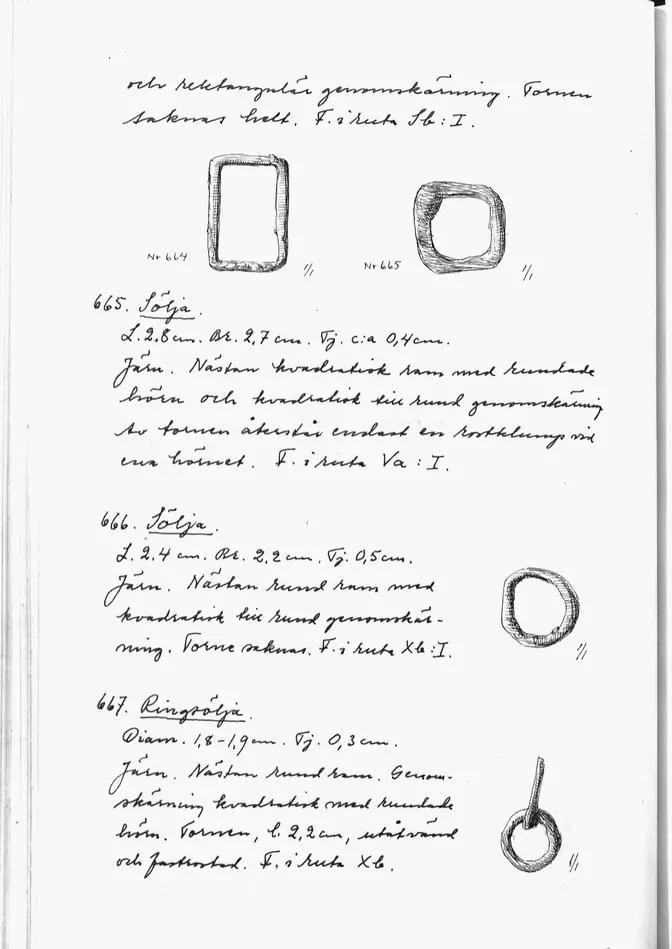 och rektangulär genomskärning. Tornen
saknas helt. F. i ruta Sb : I.
Nr 664
1/1
Nr 665
1/1
665. Sölja.
L. 2,8 cm. Br. 2,7 cm. Tj. c:a 0,4 cm.
Järn. Nästan kvadratisk ram med rundade
hörn och kvadratisk till rund genomskärning
Av tornen återstår endast en rostklump vid
ena hörnet. F. i ruta Va : I.
666. Sölja.
L. 2,4 cm. Br. 2,2 cm. Tj. 0,5 cm.
Järn. Nästan rund ram med
kvadratisk till rund genomskär-
ning. Torne saknas. F. i ruta Xb : I.
1/1
667. Ringsölja.
Diam. 1,8-1,9 cm. Tj. 0,3 cm.
Järn. Nästan rund ram. Genom-
skärning kvadratisk med rundade
hörn. Tornen, l. 2,2 cm, utåtvänd
och fastrostad. F. i ruta Xb.
1/1